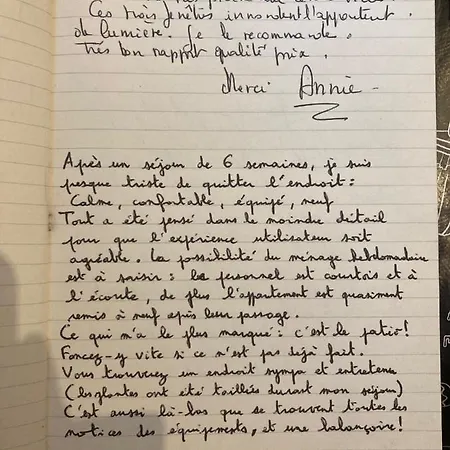 Ces trois fenêtres innondent l'appartement
de lumière. Je le recommande.
Très bon rapport qualité prix.
Merci Annie
Après un séjour de 6 semaines, je suis
presque triste de quitter l'endroit :
Calme, confortable, équipé, neuf
Tout a été pensé dans le moindre détail
pour que l'expérience utilisateur soit
agréable. La possibilité du ménage hebdomadaire
est à saisir : le personnel est courtois et à
l'écoute, de plus l'appartement est quasiment
remis à neuf après leur passage.
Ce qui m'a le plus marqué : c'est le patio !
Foncez-y vite si ce n'est pas déjà fait.
Vous trouverez un endroit sympa et entretenu
(les plantes ont été taillées durant mon séjour)
C'est aussi là-bas que se trouvent toutes les
notices des équipements, et une balançoire !